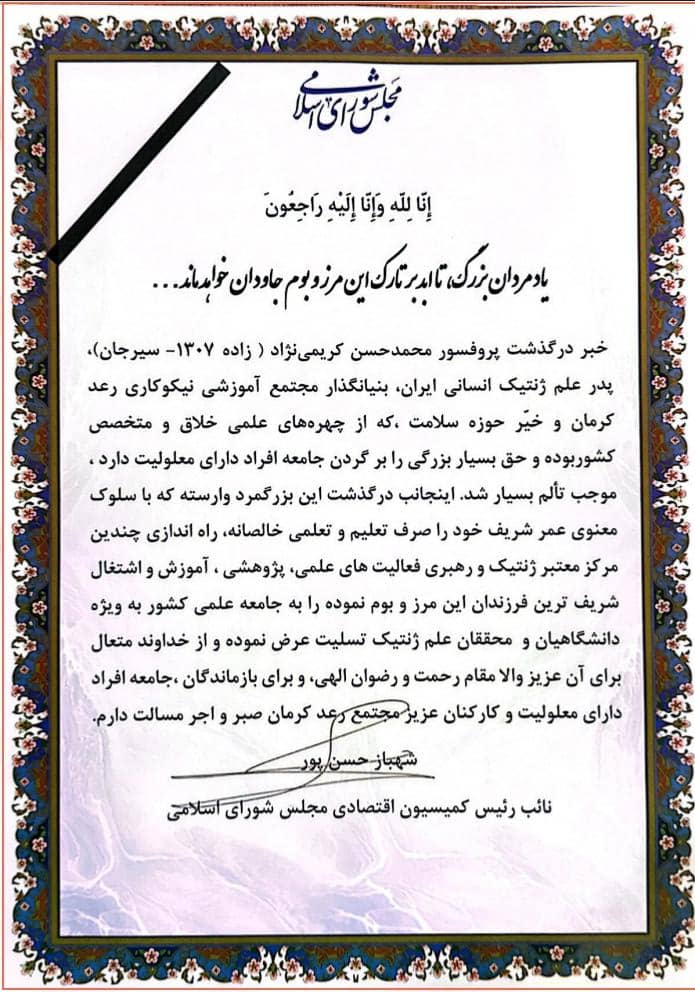 مجلس شورای اسلامی
إِنَّا لِلَّهِ وَإِنَّا إِلَيْهِ رَاجِعُونَ
یاد مردان بزرگ، تا ابد بر تارک این مرز و بوم جاودان خواهد ماند...
خبر درگذشت پروفسور محمدحسن کریمی‌نژاد ( زاده ۱۳۰۷- سیرجان)،
پدر علم ژنتیک انسانی ایران، بنیانگذار مجتمع آموزشی نیکوکاری رعد
کرمان و خیّر حوزه سلامت ،که از چهره‌های علمی خلاق و متخصص
کشوربوده و حق بسیار بزرگی را بر گردن جامعه افراد دارای معلولیت دارد ،
موجب تألم بسیار شد. اینجانب درگذشت این بزرگمرد وارسته که با سلوک
معنوی عمر شریف خود را صرف تعلیم و تعلمی خالصانه، راه اندازی چندین
مرکز معتبر ژنتیک و رهبری فعالیت های علمی، پژوهشی ، آموزش و اشتغال
شریف ترین فرزندان این مرز و بوم نموده را به جامعه علمی کشور به ویژه
دانشگاهیان و محققان علم ژنتیک تسلیت عرض نموده و از خداوند متعال
برای آن عزیز والا مقام رحمت و رضوان الهی، و برای بازماندگان ،جامعه افراد
دارای معلولیت و کارکنان عزیز مجتمع رعد کرمان صبر و اجر مسالت دارم.
شهباز حسن پور
نائب رئیس کمیسیون اقتصادی مجلس شورای اسلامی